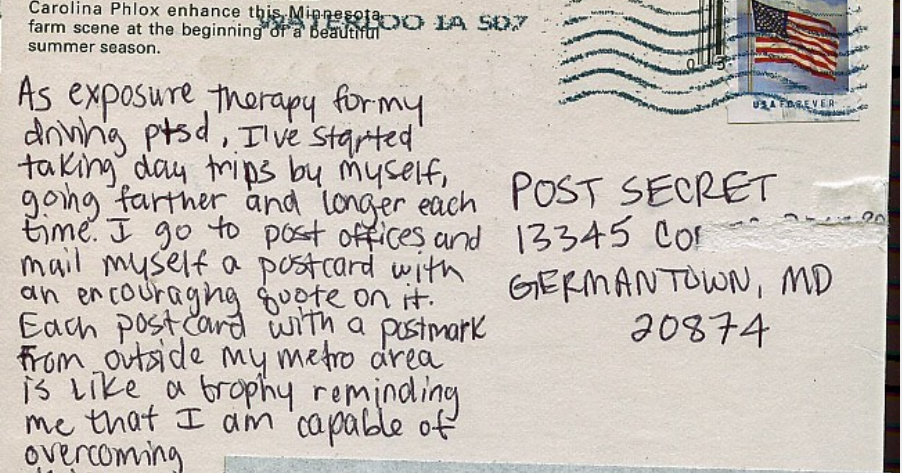 Carolina Phlox enhance this Minnesota
farm scene at the beginning of a beautiful
summer season.
WATERLOO IA 507
USA FOREVER
As exposure therapy for my
driving ptsd, I've started
taking day trips by myself,
going farther and longer each
time. I go to post offices and
mail myself a postcard with
an encouragng quote on it.
Each postcard with a postmark
from outside my metro area
is like a trophy reminding
me that I am capable of
overcoming
POST SECRET
13345
GERMANTOWN, MD
20874